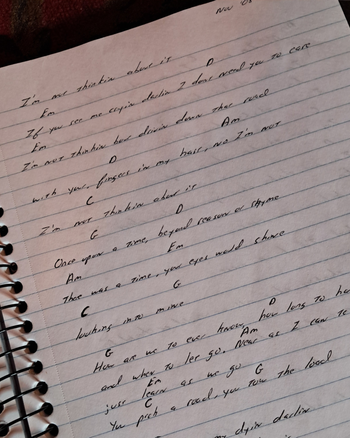 Nov '08
I'm not thinkin about it
Em D
If you see me cryin darlin I dont need you to care
Em
I'm not thinkin bout drivin down that road
D Am
with your fingers in my hair, no I'm not
C
I'm not thinkin about it
G D
Once upon a time, beyond reason or rhyme
Am Em
There was a time, your eyes would shine
C G
looking into mine
G D
How are we to ever know, how long to
and when to let go. Am Near as I can
Em
just learn as we go G
C
You pick a road, you tow the load
dyin darlin